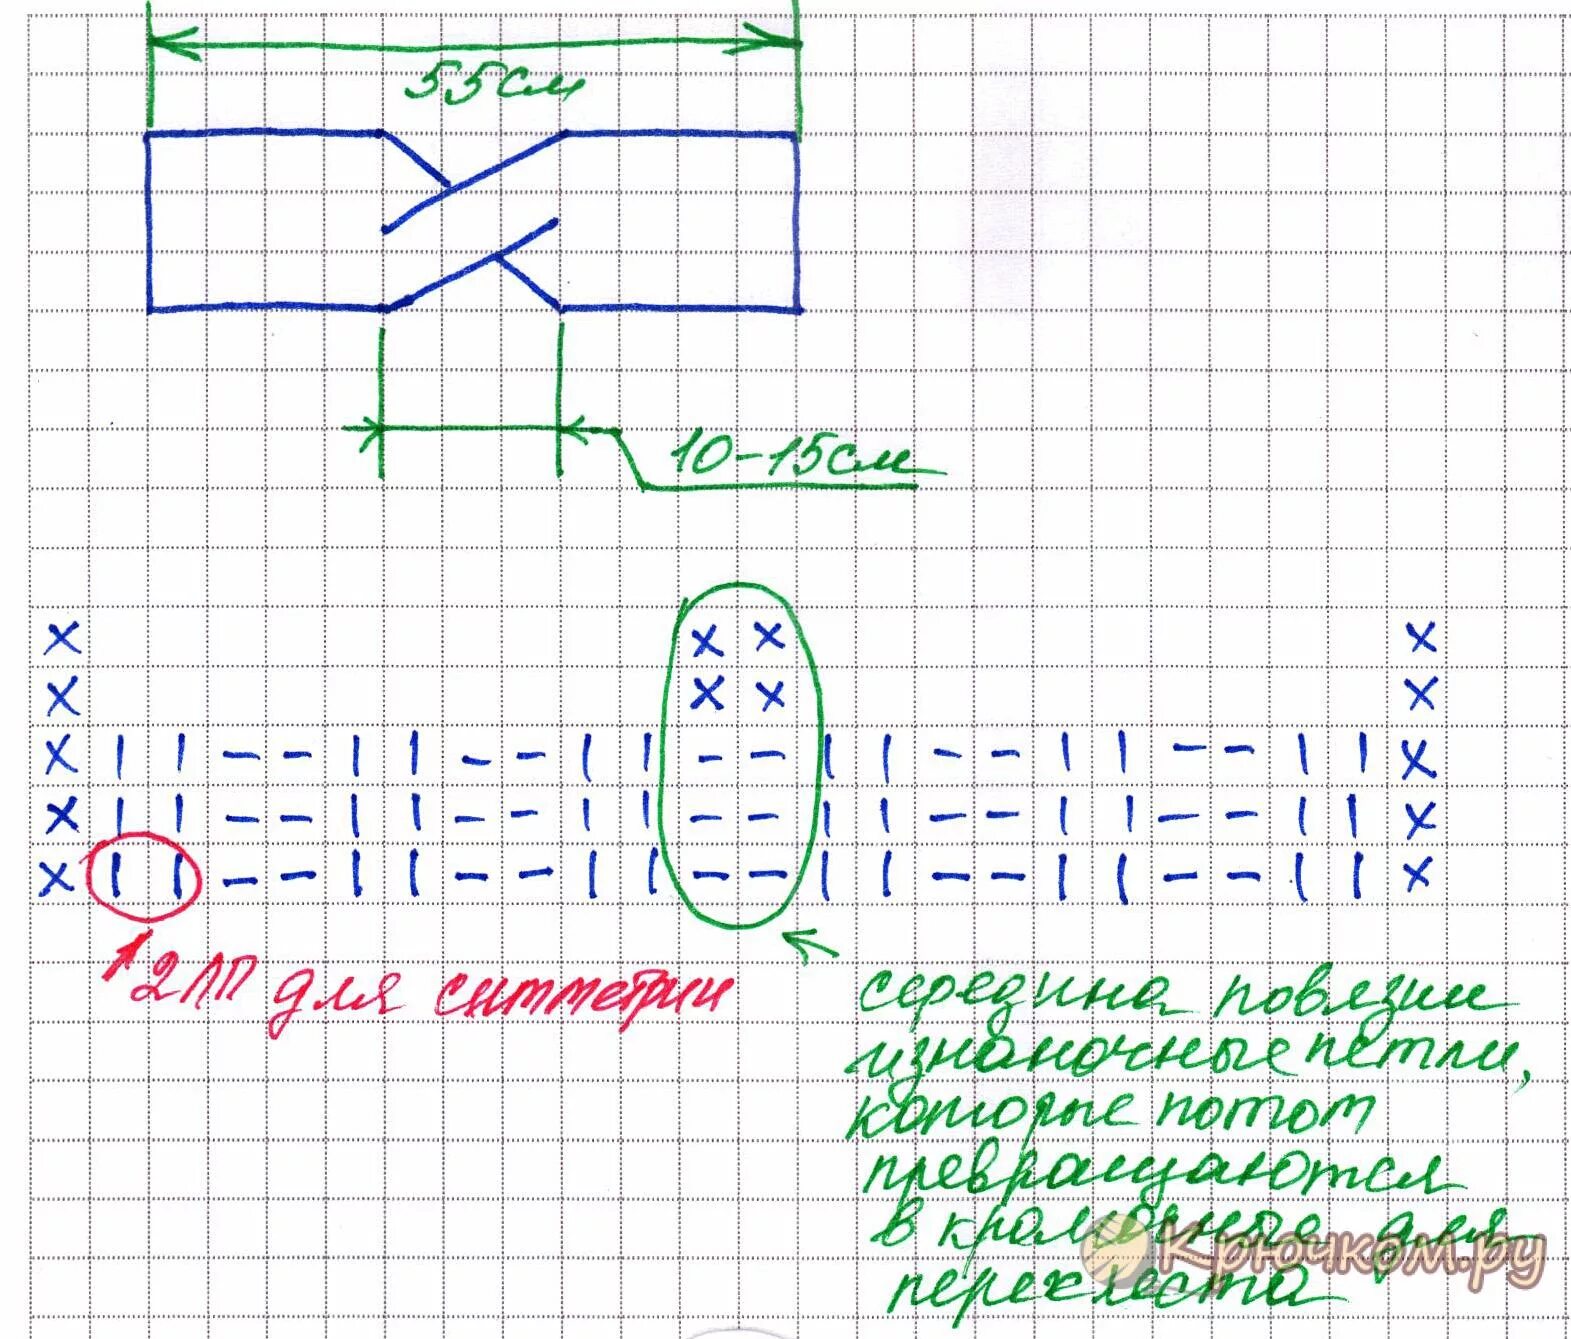 55см
10-15см
2ЛП для симметрии
середина повязки
изнаночные петли,
которые потом
превращаются
в кромочные для
перехлеста
Крючком.ру